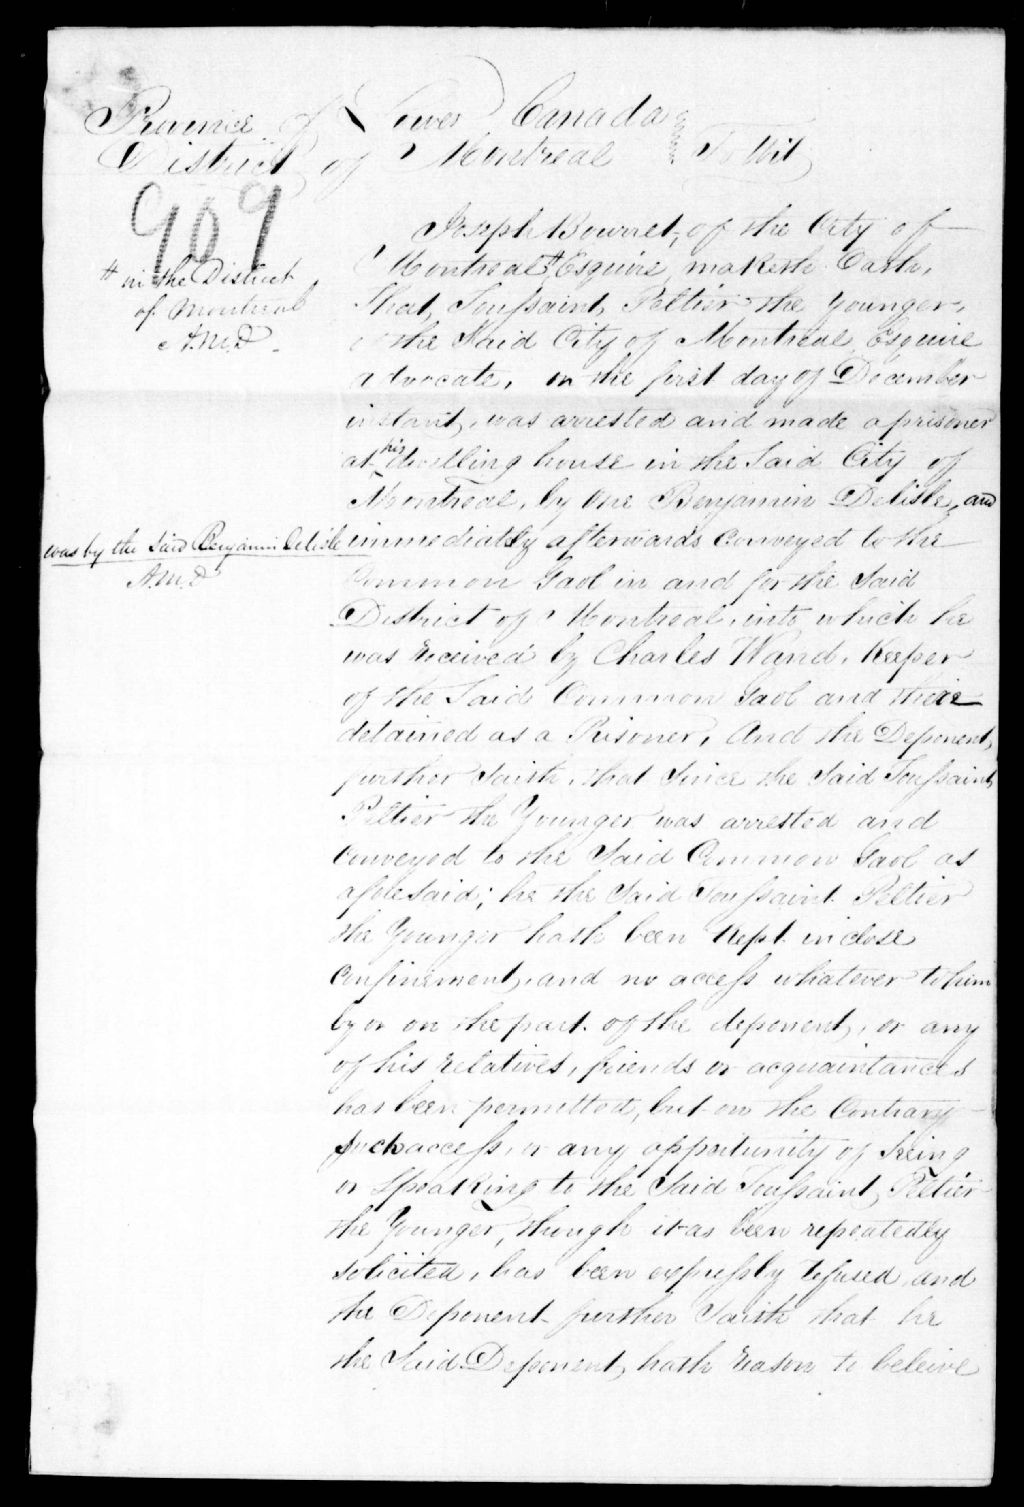 Province of Lower Canada
District of Montreal To Wit
909
Joseph Bournet, of the City of
Montreal # Esquire maketh Oath,
# in the District
of Montreal
A.M.D.
that, Toussaint Peltier the Younger,
the Said City of Montreal Esquire
advocate, on the first day of December
instant, was arrested and made a prisoner
at his dwelling house in the Said City of
Montreal, by One Benjamin Delisle, and
was by the said Benjamin Delisle
A.M.D
immediately afterwards Conveyed to the
Common Gaol in and for the Said
District of Montreal, into which he
was Received by Charles Wand, Keeper
of the Said Common Gaol and there
detained as a Prisoner, And the Deponent
further Saith, that Since the Said Toussaint
Peltier the Younger was arrested and
Conveyed to the Said Common Gaol as
aforesaid; he the Said Toussaint Peltier
the Younger hath been Kept in close
Confinement, and no access whatever to him
by or on the part of the deponent, or any
of his Relatives, friends or acquaintances
has been permitted, but on the Contrary
such access, or any opportunity of Seeing
or Speaking to the Said Toussaint Peltier
the Younger, though it as been repeatedly
solicited, has been expressly refused, and
the Deponent further Saith that he
the Said Deponent hath Reason to beleive